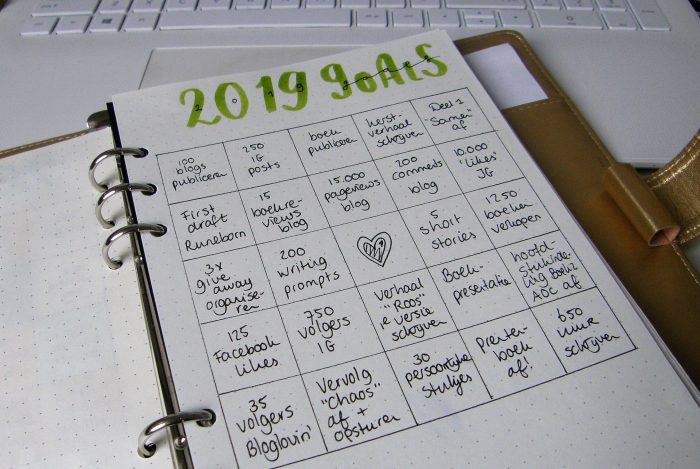 2019 goals
100
blogs
publiceren
250
IG
posts
boek
publiceren
kerst-
verhaal
schrijven
Deel 2
"Samen"
af
First
draft
Runeborn
15
boekre-
views
blog
15.000
pageviews
blog
200
comments
blog
10.000
'likes'
IG
3x
give
away
organise-
ren
200
writing
prompts
5
short
stories
1250
boeken
verkopen
125
Facebook
likes
750
volgers
IG
verhaal
"Roos"
1e versie
schrijven
Boek-
presentatie
hoofd-
stukinde-
ling Boek 2
AOC af
35
volgers
Bloglovin'
Vervolg
"Chaos"
af +
opsturen
30
persoonlijke
stukjes
Prenten-
boek
af!
650
uur
schrijven